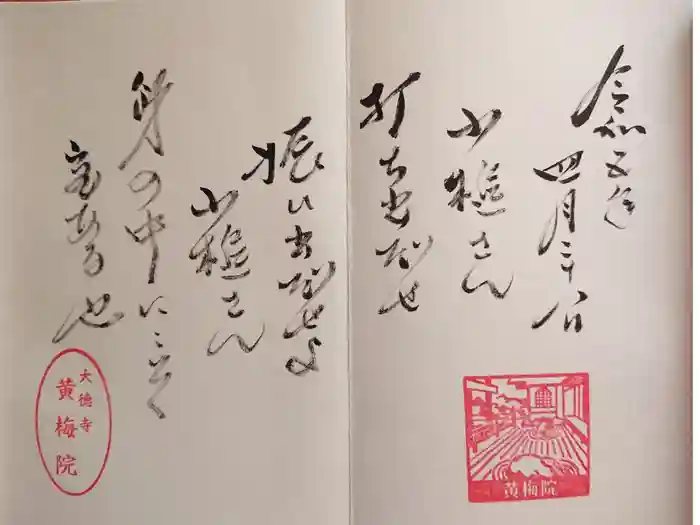 令和五年
四月三十日
小槌さん
打ち出だせ
振い出だせよ
小槌さん
身の中にこそ
宝ある也
黄梅院
大徳寺
黄梅院